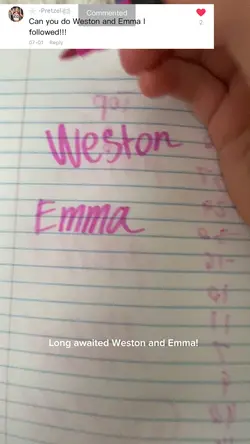 -Pretzel
Commented
Can you do Weston and Emma I
followed!!!
01-01 Reply
2
Weston
Emma
Long awaited Weston and Emma!